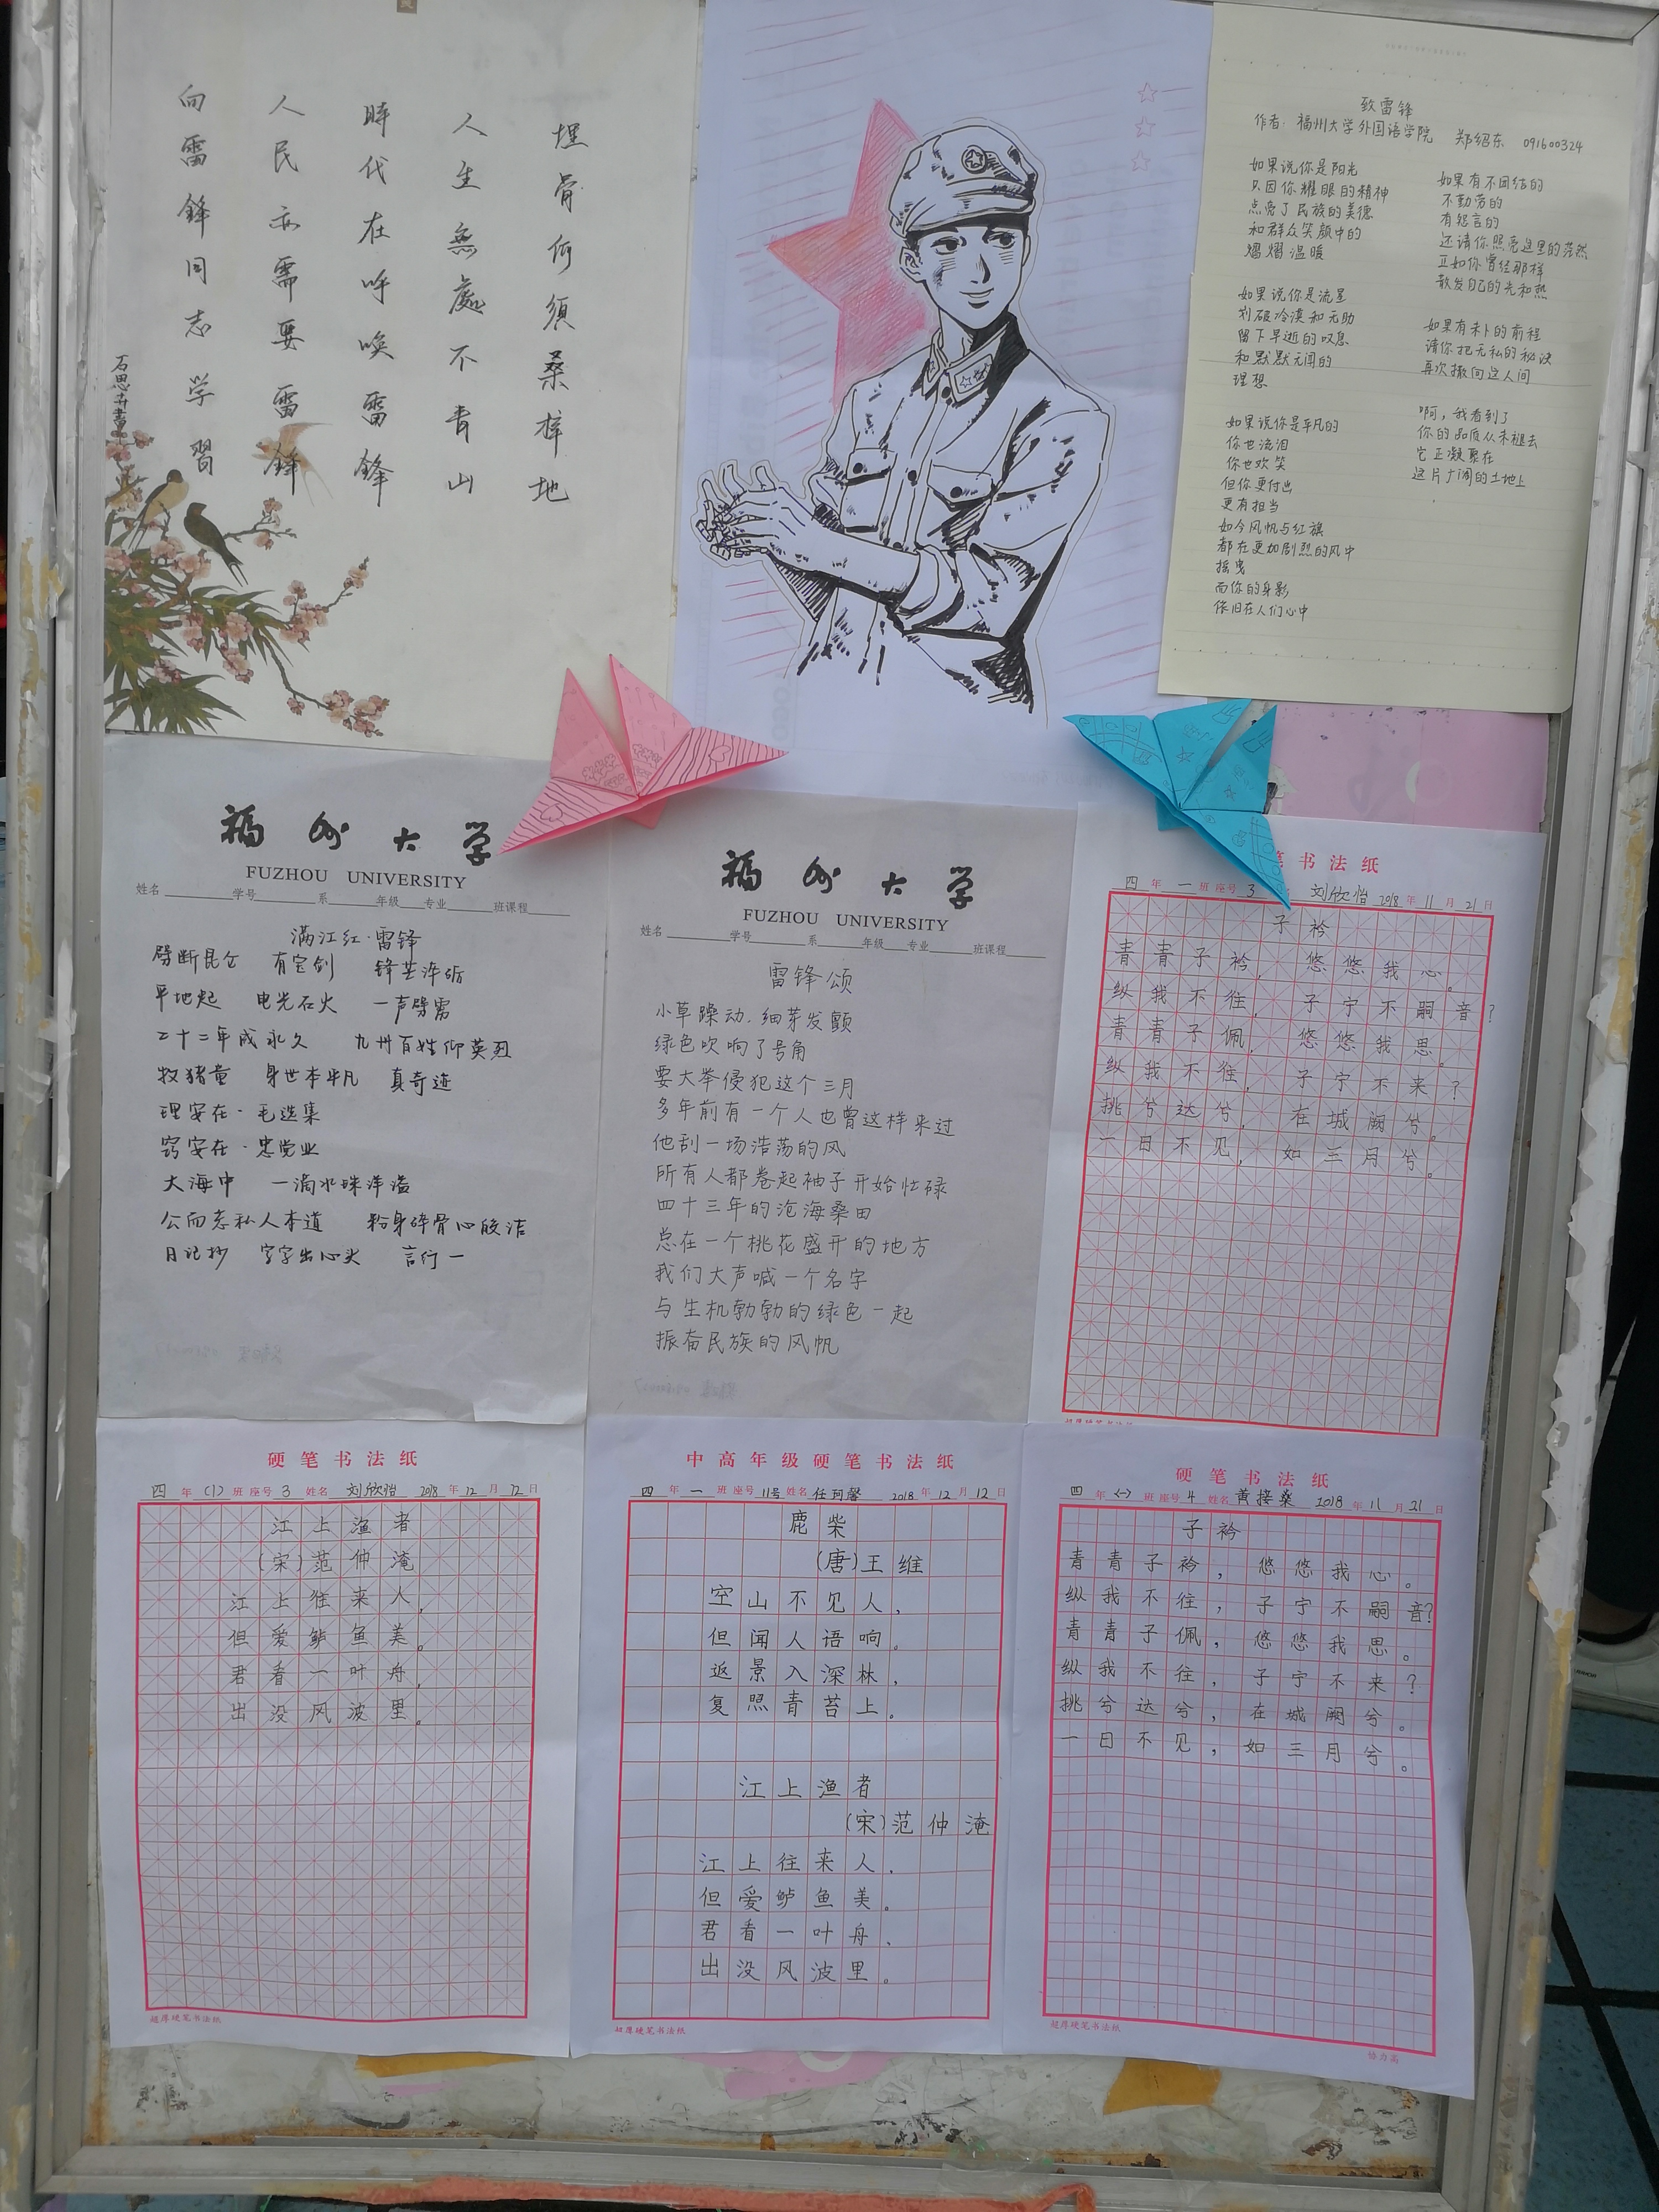 埋骨何须桑梓地
人生無處不青山
時代在呼唤雷锋
人民亦需要雷鋒
向雷鋒同志学習
石思卉書
致雷锋
作者：福州大学外国语学院 郑绍东 091600324
如果说你是阳光
只因你耀眼的精神
点亮了民族的美德
和群众笑颜中的
熠熠温暖
如果说你是流星
划破冷漠和无助
留下早逝的叹息
和默默无闻的
理想
如果说你是平凡的
你也流泪
你也欢笑
但你更付出
更有担当
如今风帆与红旗
都在更加剧烈的风中
摇曳
而你的身影
依旧在人们心中
如果有不团结的
不勤劳的
有怨言的
还请你照亮这里的茫然
正如你曾经那样
散发自己的光和热
如果有未卜的前程
请你把无私的秘诀
再次撒向这人间
啊，我看到了
你的品质从未褪去
它正凝聚在
这片广阔的土地上
福州大学
FUZHOU UNIVERSITY
姓名 学号 系 年级 专业 班课程
满江红·雷锋
劈断昆仑 有宝剑 锋芒淬砺
平地起 电光石火 一声劈雳
二十二年成永久 九州百姓仰英烈
牧猪童 身世本平凡 真奇迹
理安在·毛选集
窍安在·忠党业
大海中 一滴水珠洋溢
公而忘私人本道 粉身碎骨心皎洁
日记抄 字字出心头 言行一
福州大学
FUZHOU UNIVERSITY
姓名 学号 系 年级 专业 班课程
雷锋颂
小草躁动，细芽发颤
绿色吹响了号角
要大举侵犯这个三月
多年前有一个人也曾这样来过
他刮一场浩荡的风
所有人都卷起袖子开始忙碌
四十三年的沧海桑田
总在一个桃花盛开的地方
我们大声喊一个名字
与生机勃勃的绿色一起
振奋民族的风帆
笔书法纸
四年一班座号3 刘欣怡 2018年11月21日
子衿
青青子衿，悠悠我心。
纵我不往，子宁不嗣音？
青青子佩，悠悠我思。
纵我不往，子宁不来？
挑兮达兮，在城阙兮。
一日不见，如三月兮。
超厚硬笔书法纸
硬笔书法纸
四年(1)班座号3姓名刘欣怡 2018年12月12日
江上渔者
(宋)范仲淹
江上往来人，
但爱鲈鱼美。
君看一叶舟，
出没风波里。
超厚硬笔书法纸
中高年级硬笔书法纸
四年一班座号11号姓名任珂馨 2018年12月12日
鹿柴
(唐)王维
空山不见人，
但闻人语响。
返景入深林，
复照青苔上。
江上渔者
(宋)范仲淹
江上往来人，
但爱鲈鱼美。
君看一叶舟，
出没风波里。
超厚硬笔书法纸
硬笔书法纸
四年(一)班座号4姓名黄接燊 2018年11月21日
子衿
青青子衿，悠悠我心。
纵我不往，子宁不嗣音？
青青子佩，悠悠我思。
纵我不往，子宁不来？
挑兮达兮，在城阙兮。
一日不见，如三月兮。
超厚硬笔书法纸